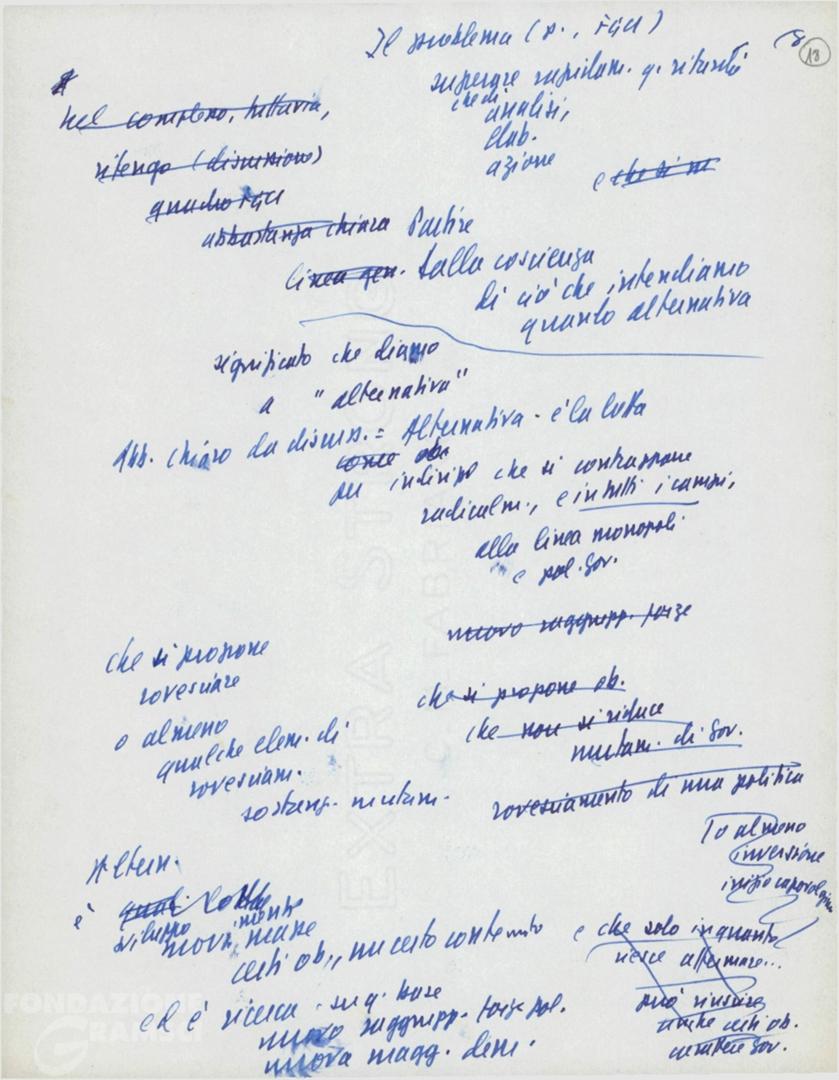 18
Il problema (p.,
superare rapidam. q. ritardi
che di
analisi,
elab.
azione
e che si
nel complesso, tuttavia,
ritengo (discussione)
quadro
abbastanza chiara Partire
linea gen. dalla coscienza
di ciò che intendiamo
quando alternativa
significato che diamo
a "alternativa"
Abb. chiaro da discuss. = Alternativa - è la lotta
come ob.
per indirizzo che si contrappone
radicalm., e in tutti i campi,
alla linea monopoli
e pol. Gov.
nuovo raggrupp. forze
che si propone
rovesciare
o almeno
qualche elem. di
rovesciam.
sostanz. mutam.
che si propone ob.
che non si riduce
mutam. di Gov.
rovesciamento di una politica
o almeno
inversione
inizio
Altern.
è
sviluppo
movimento masse
certi ob., un certo contenuto
ed è ricerca su q. base
nuovo raggrupp. forze pol.
nuova magg. dem.
e che solo in quanto
riesce affermare...
può riuscire
anche certi ob.
carattere Gov.
EXTRA STRONG
FABR
FONDAZIONE
GRAMSCI